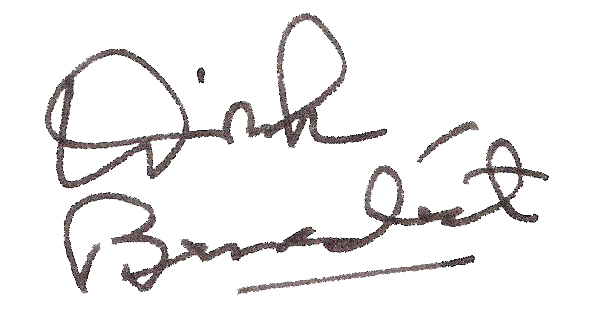 Dirk
Benedict